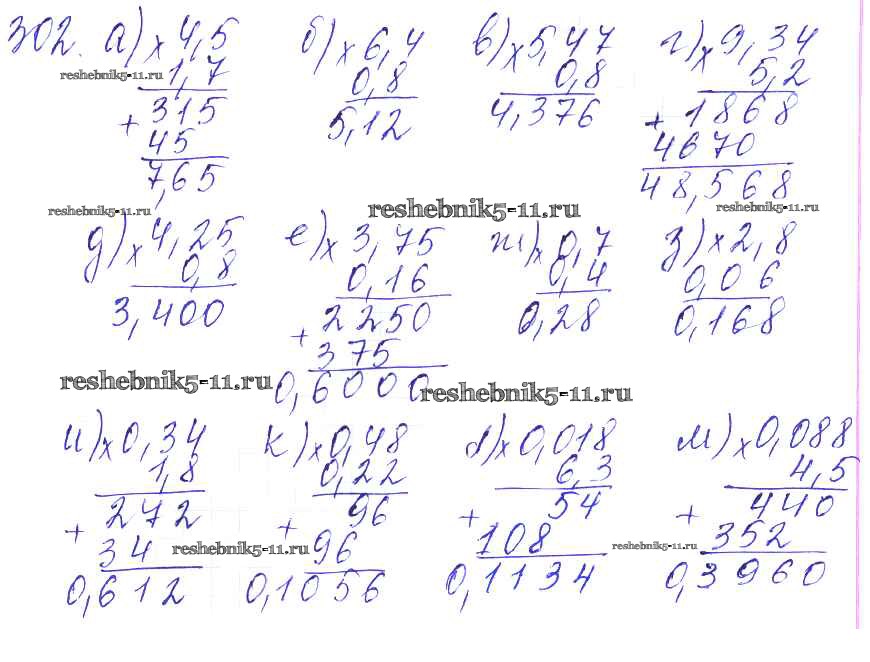 302. а) × 4,5 б) × 6,4 в) × 5,47 г) × 9,34
reshebnik5-11.ru 1,7 0,8 0,8 5,2
+ 315 5,12 4,376 + 1868
45 4670
7,65 48,568
reshebnik5-11.ru reshebnik5-11.ru reshebnik5-11.ru
д) × 4,25 е) × 3,75 ж) × 0,7 з) × 2,8
0,8 0,16 0,4 0,06
3,400 + 2250 0,28 0,168
375
reshebnik5-11.ru 0,6000 reshebnik5-11.ru
и) × 0,34 к) × 0,48 л) × 0,018 м) × 0,088
1,8 0,22 6,3 4,5
+ 272 + 96 + 54 + 440
34 reshebnik5-11.ru 96 108 reshebnik5-11.ru 352
0,612 0,1056 0,1134 0,3960